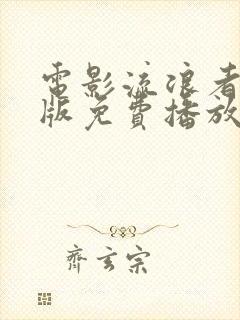 電影流浪者
版免費播放
齊玄宗